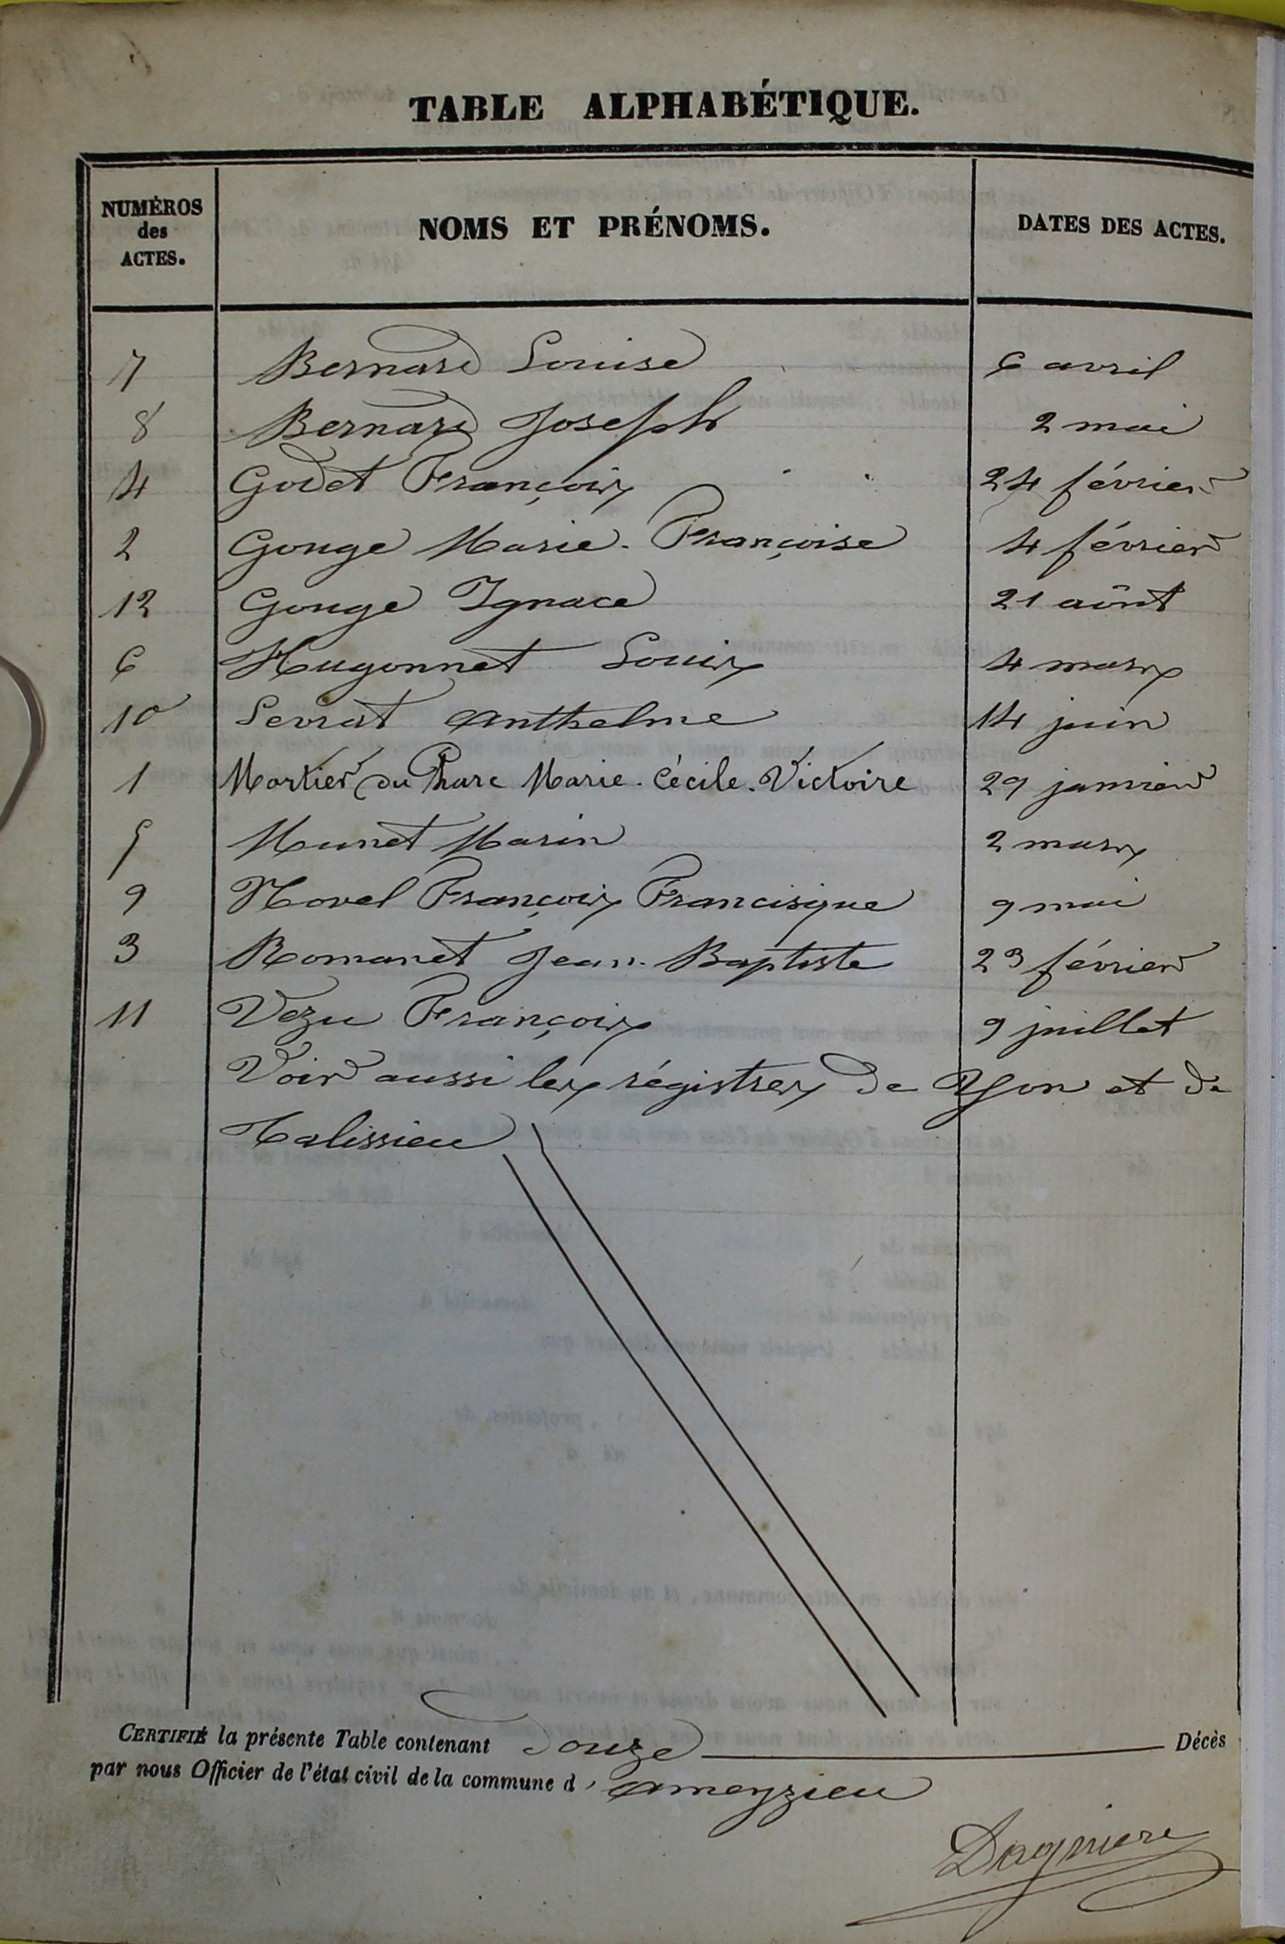 TABLE ALPHABÉTIQUE.
NUMÉROS des ACTES. NOMS ET PRÉNOMS. DATES DES ACTES.
7 Bernard Louise 6 avril
8 Bernard Joseph 2 mai
4 Godet François 24 février
2 Gouge Marie-Françoise 4 février
12 Gouge Ignace 21 aôut
6 Hugonnet Louis 4 mars
10 Levrat Anthelme 14 juin
1 Mortier du Parc Marie-Cécile-Victoire 29 janvier
5 Munet Marin 2 mars
9 Novel François Francisque 9 mai
3 Romanet Jean-Baptiste 23 février
11 Vezu François 9 juillet
Voir aussi les régistres de Yon et de
Talissieu
CERTIFIÉ la présente Table contenant Douze Décès
par nous Officier de l'état civil de la commune d'Ameyzieu